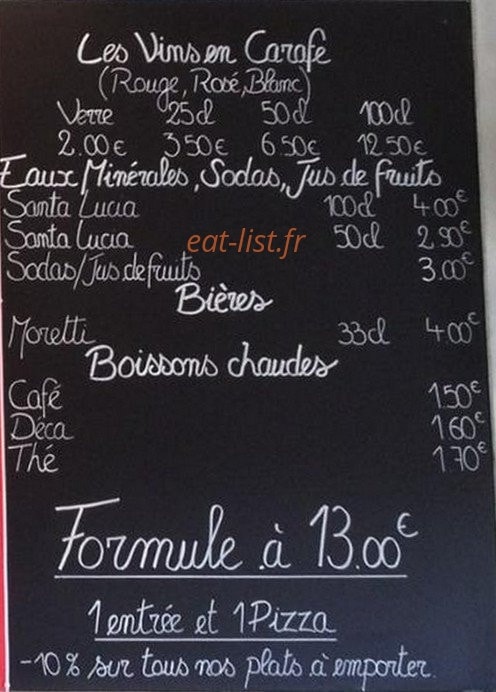 Les Vins en Carafe
(Rouge, Rosé, Blanc)
Verre 25cl 50cl 100cl
2.00€ 3 50€ 6 50€ 12 50€
Eaux Minérales, Sodas, Jus de fruits
Santa Lucia 100cl 4.00€
Santa Lucia 50cl 2.90€
eat-list.fr
Sodas/Jus de fruits 3.00€
Bières
Moretti 33cl 4.00€
Boissons chaudes
Café 1.50€
Déca 1 60€
Thé 1.70€
Formule à 13.00€
1 entrée et 1 Pizza
-10% sur tous nos plats à emporter.